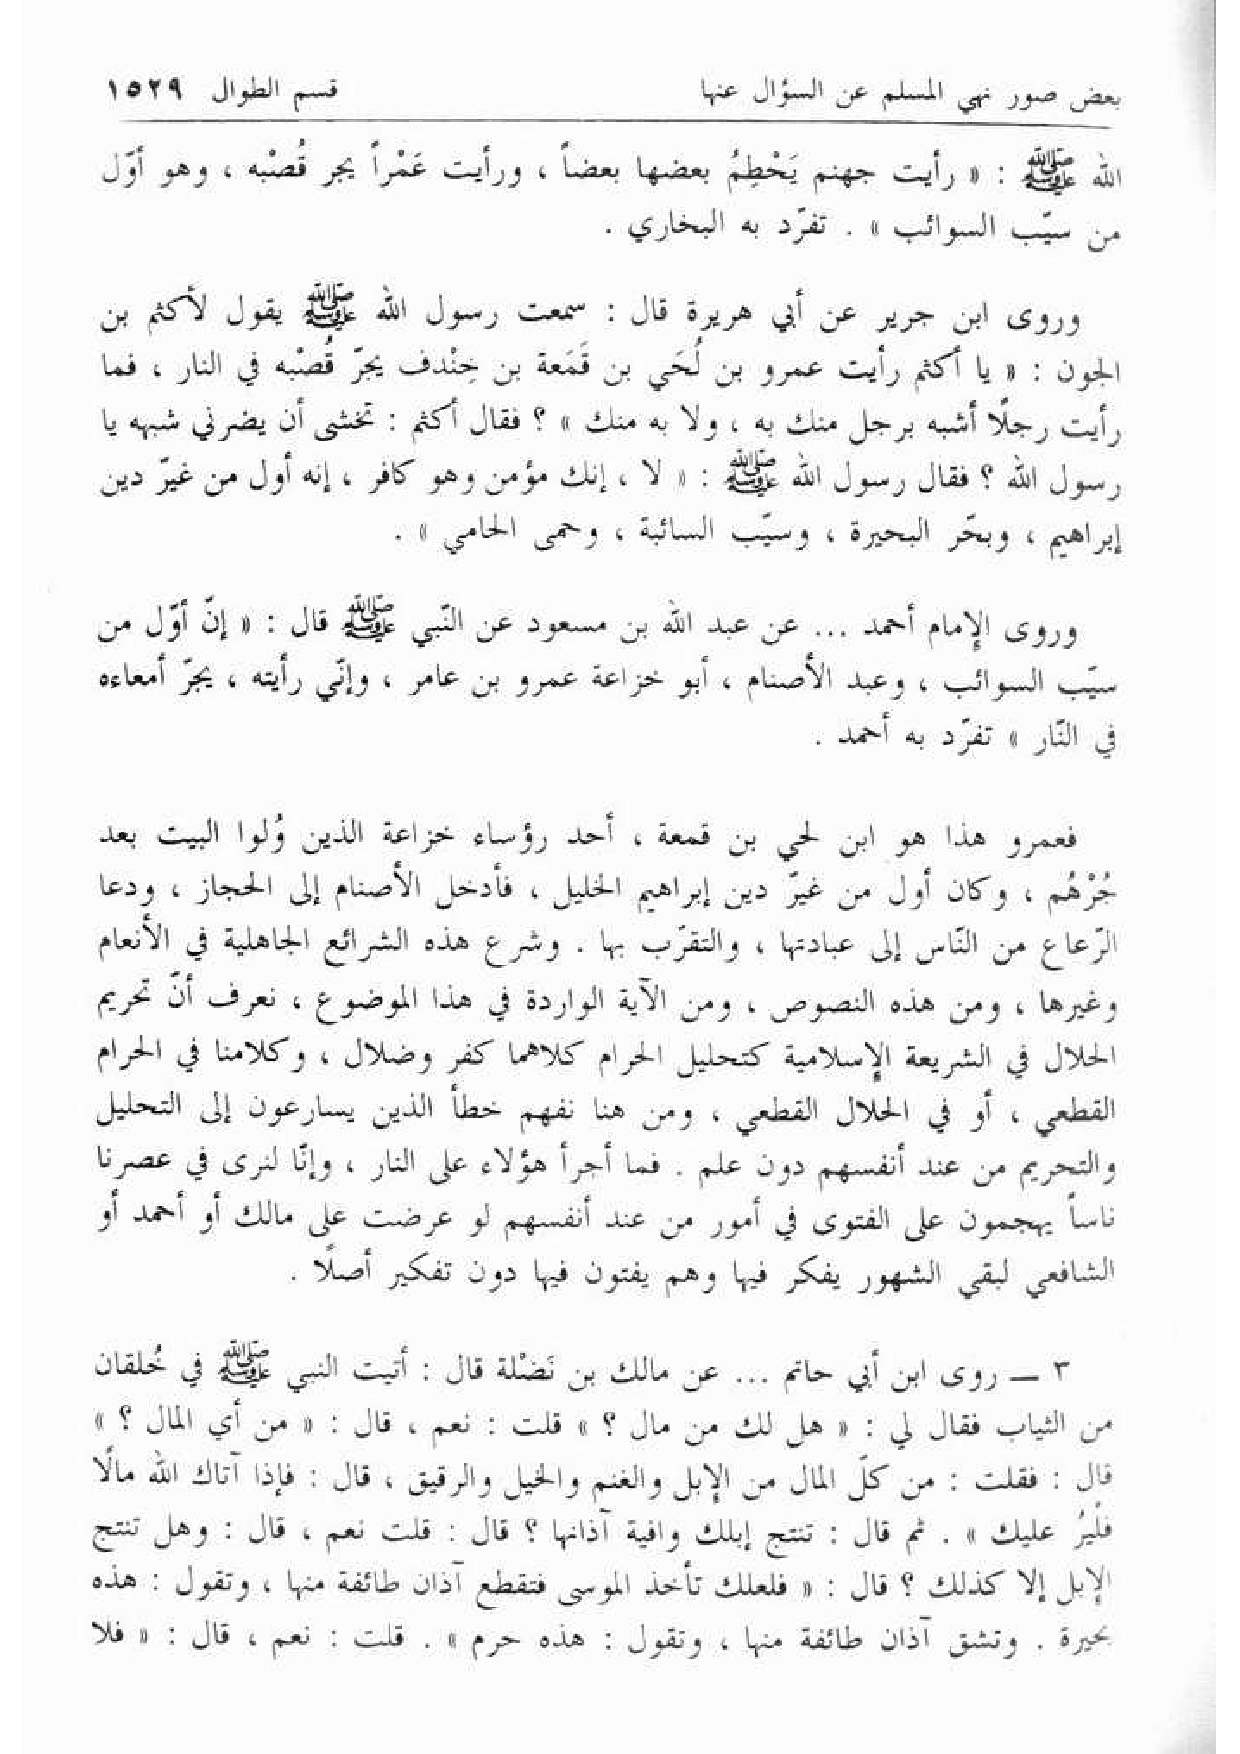 بعض صور نهي المسلم عن السؤال عنها قسم الطوال ١٥٢٩
الله ﷺ : « رأيت جهنم يَحْطِمُ بعضها بعضاً ، ورأيت عَمْراً يجر قُصْبه ، وهو أوّل
من سيّب السوائب » . تفرّد به البخاري .
وروى ابن جرير عن أبي هريرة قال : سمعت رسول الله ﷺ يقول لأكثم بن
الجون : « يا أكثم رأيت عمرو بن لُحَي بن قَمَعة بن خِنْدف يجرّ قُصْبه في النار ، فما
رأيت رجلًا أشبه برجل منك به ، ولا به منك » ؟ فقال أكثم : تخشى أن يضرني شبهه يا
رسول الله ؟ فقال رسول الله ﷺ : « لا ، إنك مؤمن وهو كافر ، إنه أول من غيّر دين
إبراهيم ، وبحّر البحيرة ، وسيّب السائبة ، وحمى الحامي » .
وروى الإمام أحمد ... عن عبد الله بن مسعود عن النّبي ﷺ قال : « إنّ أوّل من
سيّب السوائب ، وعبد الأصنام ، أبو خزاعة عمرو بن عامر ، وإنّي رأيته ، يجرّ أمعاءه
في النّار » تفرّد به أحمد .
فعمرو هذا هو ابن لحي بن قمعة ، أحد رؤساء خزاعة الذين وُلوا البيت بعد
جُرْهُم ، وكان أول من غيّر دين إبراهيم الخليل ، فأدخل الأصنام إلى الحجاز ، ودعا
الرّعاع من النّاس إلى عبادتها ، والتقرّب بها . وشرع هذه الشرائع الجاهلية في الأنعام
وغيرها ، ومن هذه النصوص ، ومن الآية الواردة في هذا الموضوع ، نعرف أنّ تحريم
الحلال في الشريعة الإسلامية كتحليل الحرام كلاهما كفر وضلال ، وكلامنا في الحرام
القطعي ، أو في الحلال القطعي ، ومن هنا نفهم خطأ الذين يسارعون إلى التحليل
والتحريم من عند أنفسهم دون علم . فما أجرأ هؤلاء على النار ، وإنّا لنرى في عصرنا
ناساً يهجمون على الفتوى في أمور من عند أنفسهم لو عرضت على مالك أو أحمد أو
الشافعي لبقي الشهور يفكر فيها وهم يفتون فيها دون تفكير أصلًا .
٣ ــ روى ابن أبي حاتم ... عن مالك بن نَضْلة قال : أتيت النبي ﷺ في خُلقان
من الثياب فقال لي : « هل لك من مال ؟ » قلت : نعم ، قال : « من أي المال ؟ »
قال : فقلت : من كلّ المال من الإبل والغنم والخيل والرقيق ، قال : فإذا آتاك الله مالًا
فلْيرُ عليك » . ثم قال : تنتج إبلك وافية آذانها ؟ قال : قلت نعم ، قال : وهل تنتج
الإبل إلا كذلك ؟ قال : « فلعلك تأخذ الموسى فتقطع آذان طائفة منها ، وتقول : هذه
بحيرة . وتشق آذان طائفة منها ، وتقول : هذه حرم » . قلت : نعم ، قال : « فلا